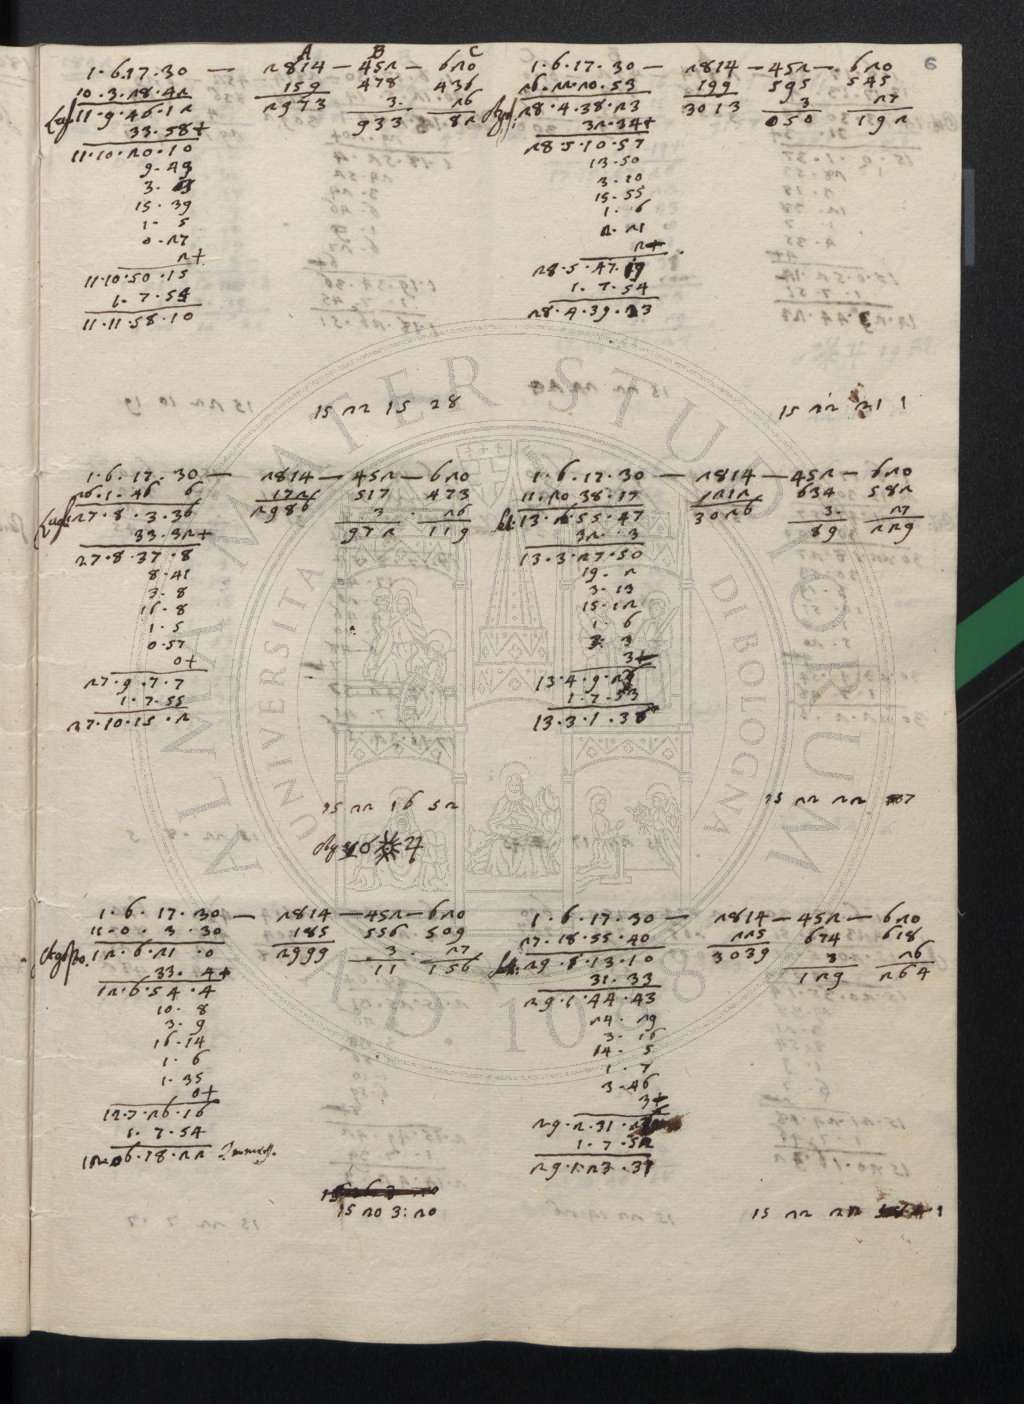 A B C
1·6·17·30 — 2814 — 452 — 620
10·3·28·42 159 478 436
Lugl. 11·9·46·12 2973 3· 26
33·58+ 933 82
11·10·20·10
9·49
15·39
1·5
0·27
2+
11·10·50·15
1·7·54
11·11·58·10
15 22 15 28
1·6·17·30 — 2814 — 452 — 620
26·22·20·53 199 595 545
28·4·38·23 3013 3 27
32·34+ 050 192
28·5·10·57
13·50
3·20
15·55
1·6
2·21
2+
28·5·47·19
1·7·54
28·4·39·23
15 22 21 1
1·6·17·30 — 2814 — 452 — 620
26·1·46 6 172 517 473
Lugl. 27·8·3·36 2986 3· 26
33·32+ 972 119
27·8·37·8
8·41
3·8
16·8
1·5
0·57
0+
27·9·7·7
1·7·55
27·10·15·2
15 22 16 52
1·6·17·30 — 2814 — 452 — 620
11·20·38·17 1212 634 582
13·26·55·47 3026 3· 27
32··3 89 229
13·3·27·50
19·2
3·13
15·12
1·6
3+
13·4·9·2
1·7·53
13·3·1·38
15 22 22
1·6·17·30 — 2814 — 452 — 620
11·0·3·30 185 556 509
Agosto. 12·6·21·0 2999 3· 27
33·4+ 11 156
12·6·54·4
10·8
3·9
16·14
1·6
1·35
0+
12·7·26·16
1·7·54
12·6·18·22
15 20 3:20
1·6·17·30 — 2814 — 452 — 620
27·18·55·40 225 674 618
29·1·13·10 3039 3 26
31·33 129 264
29·1·44·43
24·29
3·16
14·5
1·7
3·46
3+
29·2·31·
1·7·52
29·1·23·37
15 22 22
ALMA MATER STUDIORUM
UNIVERSITA DI BOLOGNA
A.D. 1088